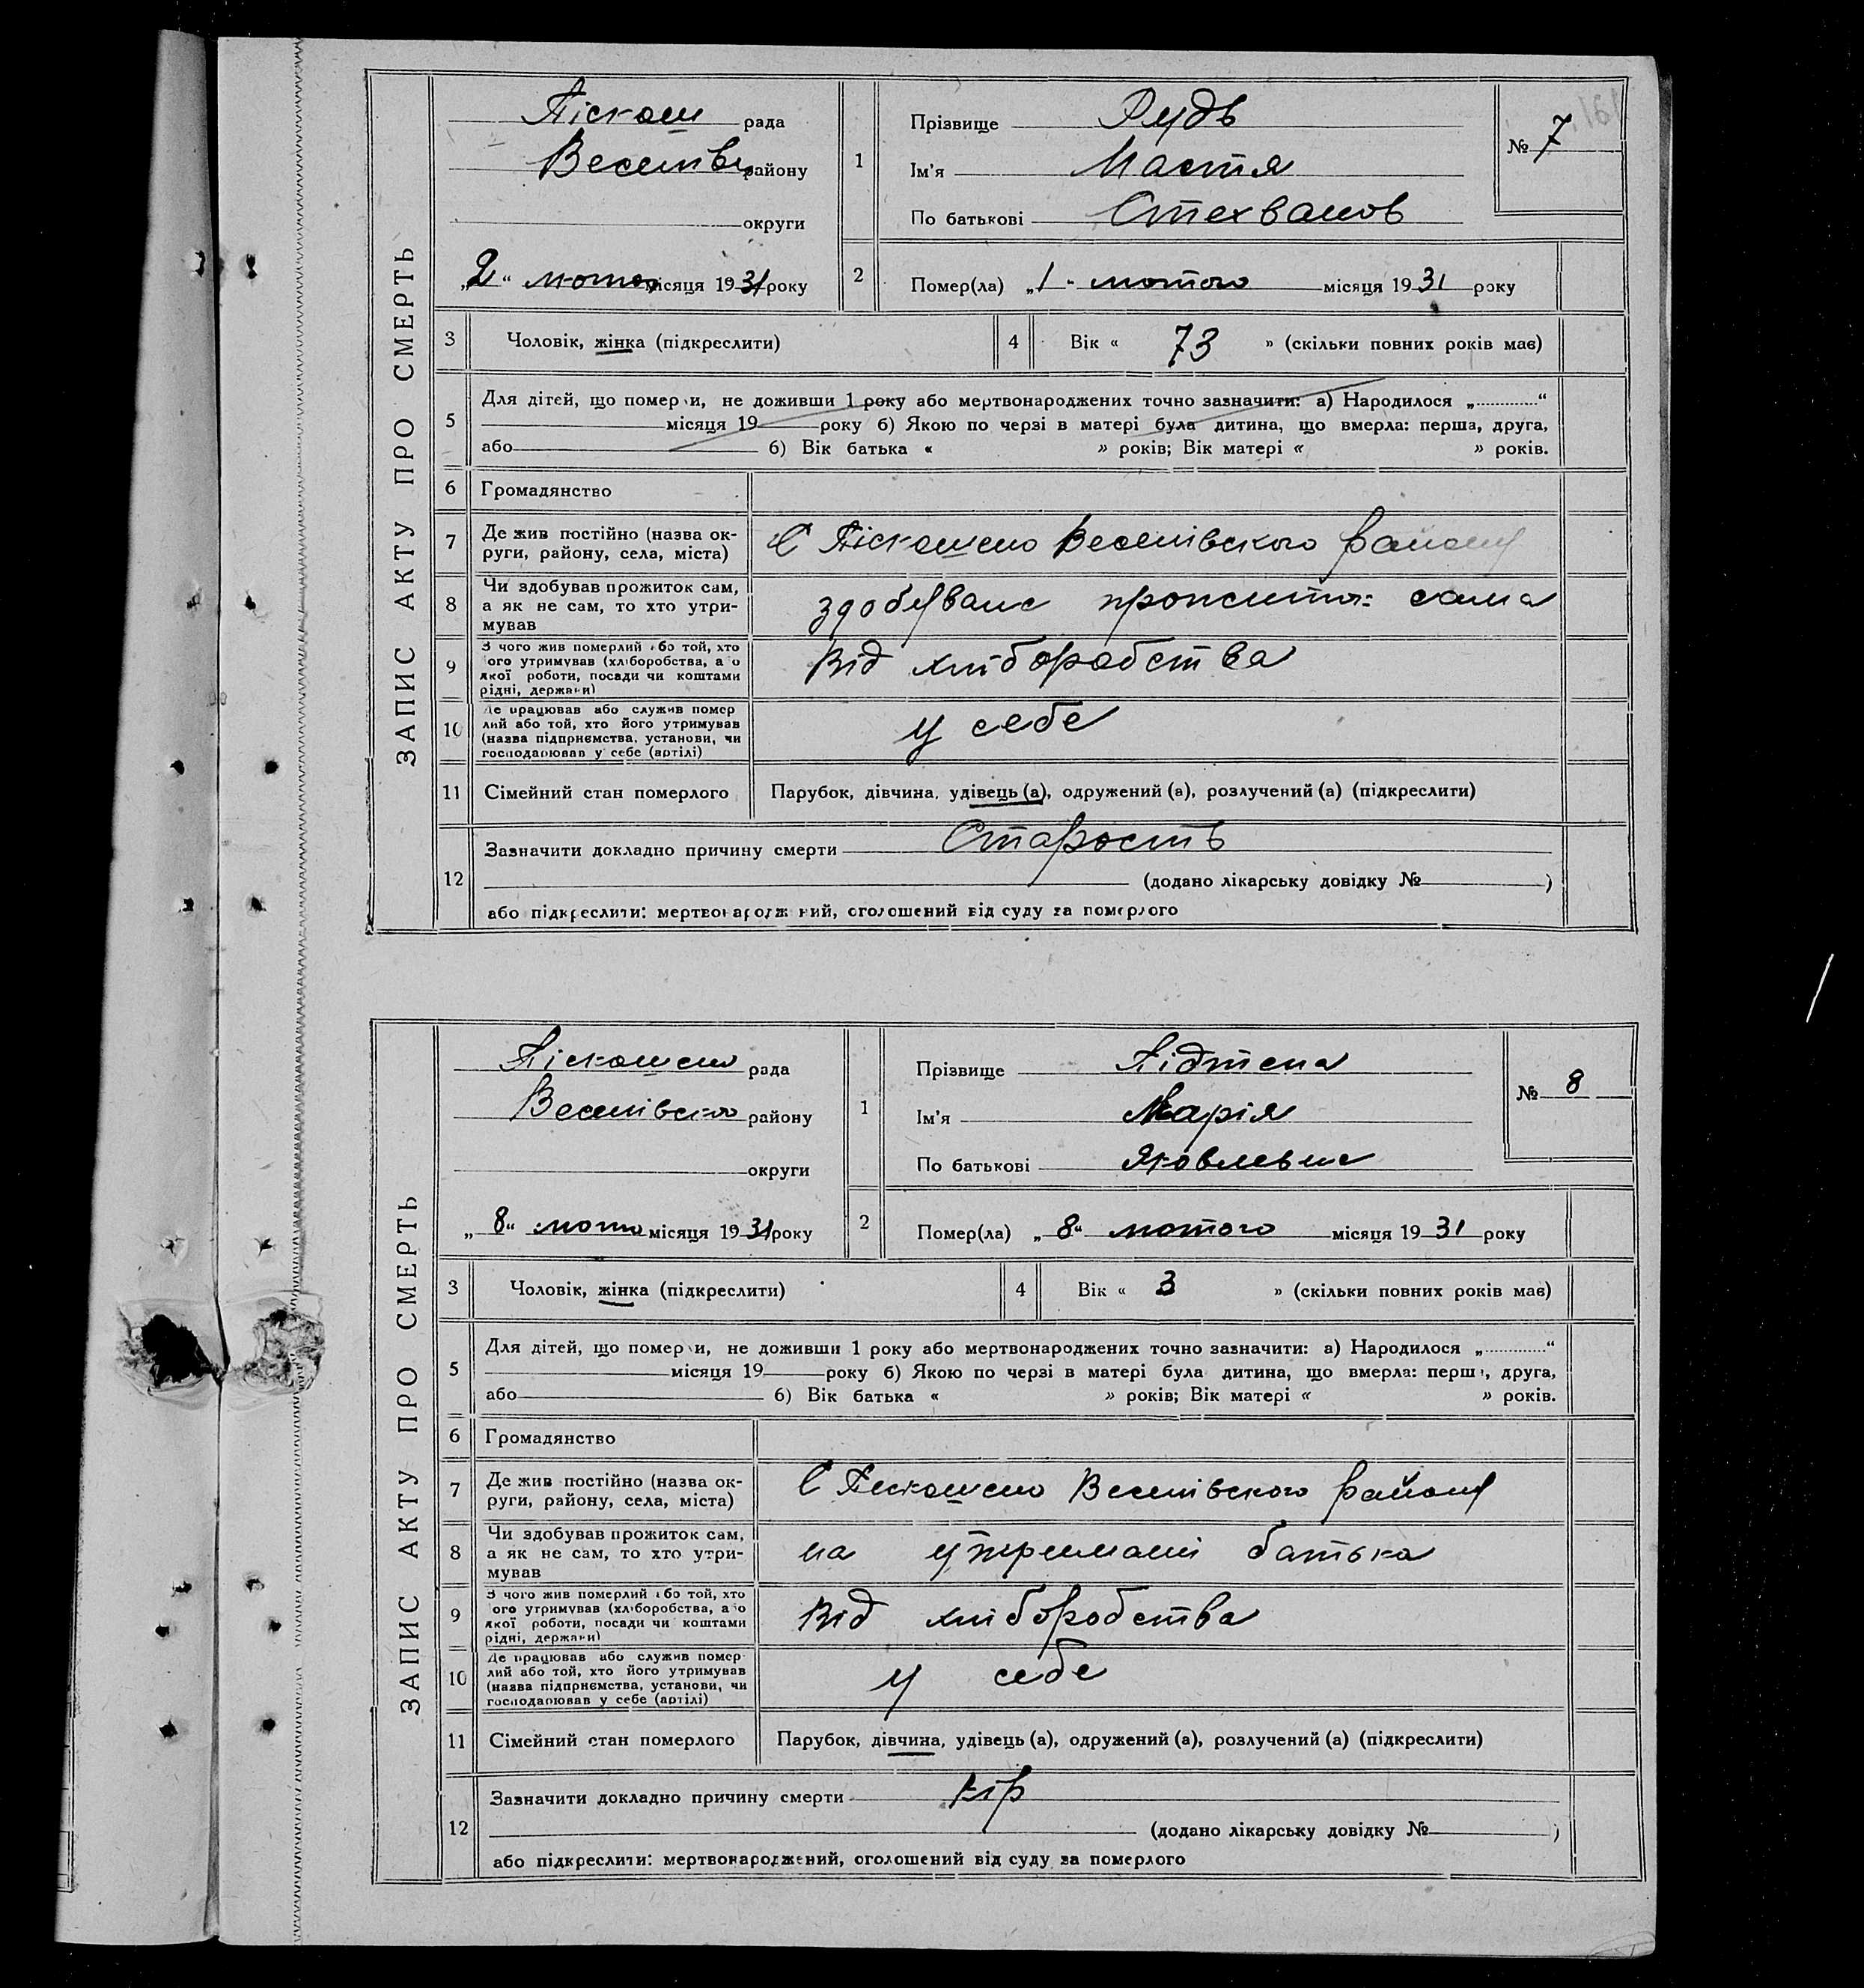 ЗАПИС АКТУ ПРО СМЕРТЬ
Піскош рада
Веселівс району
округи
„2“ лютого місяця 1931 року
1
Прізвище Рудь
Ім'я Настя
По батькові Стехванов
№ 7
2
Помер(ла) „1“ лютого місяця 1931 року
3 Чоловік, жінка (підкреслити)
4 Вік « 73 » (скільки повних років має)
5 Для дітей, що померли, не доживши 1 року або мертвонароджених точно зазначити: а) Народилося „............“
місяця 19 року б) Якою по черзі в матері була дитина, що вмерла: перша, друга,
або 6) Вік батька « » років; Вік матері « » років.
6 Громадянство
7 Де жив постійно (назва ок-
руги, району, села, міста)
С Піскошено Веселівского району
8 Чи здобував прожиток сам,
а як не сам, то хто утри-
мував
здобувала прожиття сама
9 З чого жив померлий або той, хто
його утримував (хліборобства, або
якої роботи, посади чи коштами
рідні, держави)
Від хліборобства
10 Де працював або служив помер
лий або той, хто його утримував
(назва підприємства, установи, чи
господарював у себе (артілі)
у себе
11 Сімейний стан померлого Парубок, дівчина, удівець (а), одружений (а), розлучений (а) (підкреслити)
12 Зазначити докладно причину смерти Старость
(додано лікарську довідку № )
або підкреслити: мертвонароджений, оголошений від суду за померлого
ЗАПИС АКТУ ПРО СМЕРТЬ
Піскошено рада
Веселівско району
округи
„8“ лютого місяця 1931 року
1
Прізвище
Ім'я Марія
По батькові Яковлевна
№ 8
2
Помер(ла) „8“ лютого місяця 1931 року
3 Чоловік, жінка (підкреслити)
4 Вік « 3 » (скільки повних років має)
5 Для дітей, що померли, не доживши 1 року або мертвонароджених точно зазначити: а) Народилося „............“
місяця 19 року б) Якою по черзі в матері була дитина, що вмерла: перша, друга,
або 6) Вік батька « » років; Вік матері « » років.
6 Громадянство
7 Де жив постійно (назва ок-
руги, району, села, міста)
С Пескошено Веселівского району
8 Чи здобував прожиток сам,
а як не сам, то хто утри-
мував
на утримані батька
9 З чого жив померлий або той, хто
його утримував (хліборобства, або
якої роботи, посади чи коштами
рідні, держави)
Від хліборобства
10 Де працював або служив помер
лий або той, хто його утримував
(назва підприємства, установи, чи
господарював у себе (артілі)
у себе
11 Сімейний стан померлого Парубок, дівчина, удівець (а), одружений (а), розлучений (а) (підкреслити)
12 Зазначити докладно причину смерти кір
(додано лікарську довідку № )
або підкреслити: мертвонароджений, оголошений від суду за померлого